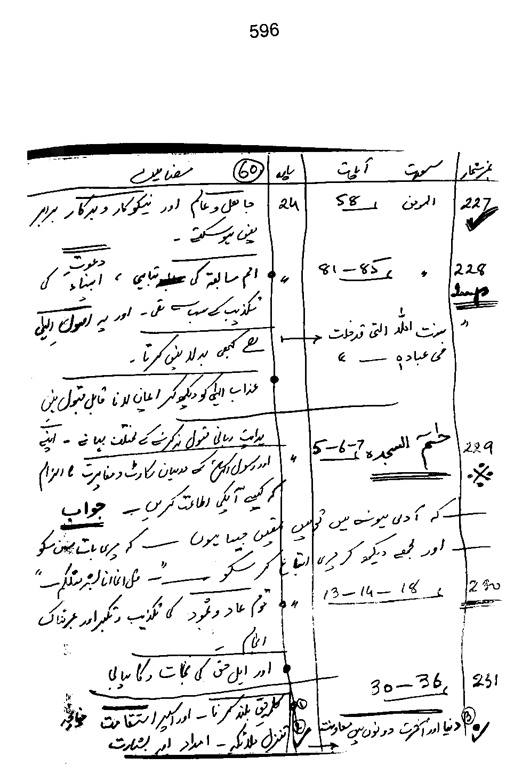 596
نمبر شمار سورت آیات پارہ 60 مضامین
227 المومن 58 24 جاہل و عالم اور نیکوکار و بدکار برابر
نہیں ہو سکتے ۔
228 " 81—85 " امم سابقہ کی تباہی ، انبیاء کی دعوت
Imp تکذیب کے سبب سے تھی ۔ اور یہ اصول الٰہی
" سنت اللہ التی قد خلت ہے کبھی بدلا نہیں کرتا ۔
فی عبادہ
عذاب الٰہی کو دیکھ کر ایمان لانا قابل قبول نہیں
229 حٰم السجدہ 5-6-7 " ہدایت ربانی قبول نہ کرنے کے مختلف بہانے ۔ اپنے
اور رسول اکرم کے درمیان رکاوٹ و مغایرت کا الزام
کہ کیسے آپکی اطاعت کریں ۔ جواب
کہ آدمی ہونے میں تو میں تمہیں جیسا ہوں — کہ میری بات سن سکو
اور مجھے دیکھ کر میری اتباع کر سکو — " قل انما انا بشر مثلکم "
230 13-14-18 " قوم عاد و ثمود کی تکذیب و تکبر اور عبرتناک
انجام ۔
اور اہل حق کی نجات و کامیابی
231 30—36 1 کلمہ حق بلند کرنا ۔ اور اسپر استقامت
3 دنیا اور آخرت دونوں میں معاونت 2 تنزل ملائکہ ۔ امداد اور بشارت